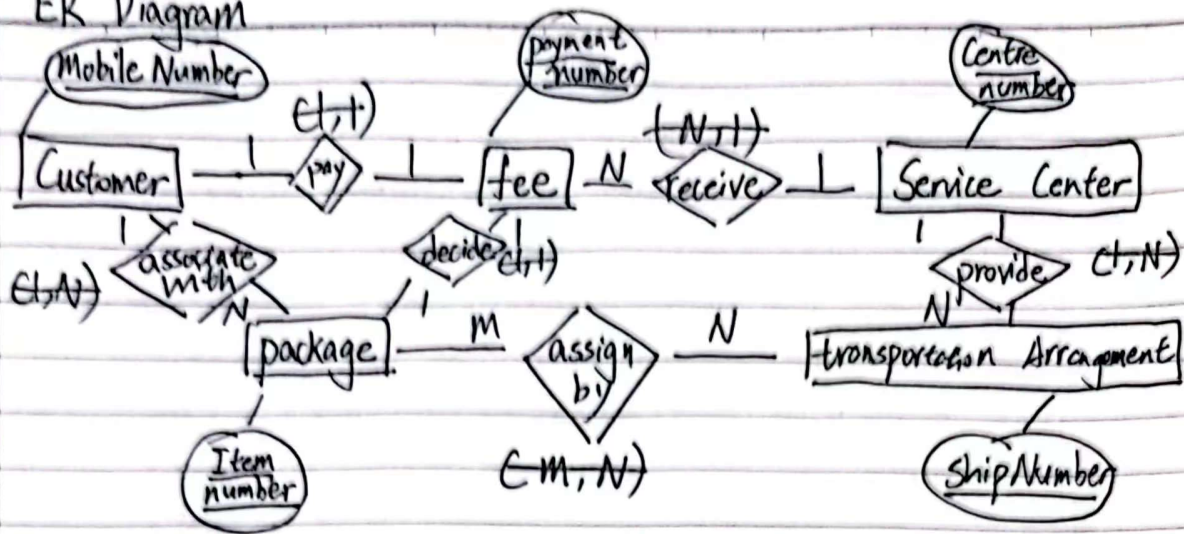 ER Diagram
Mobile Number
payment
number
Centre
number
(1,1)
(N,1)
Customer
1
pay
1
fee
N
receive
1
Service Center
1
associate
with
N
(1,N)
decide
1
(1,1)
1
1
provide
N
(1,N)
package
M
assign
by
N
transportation Arrangement
(M,N)
Item
number
ShipNumber